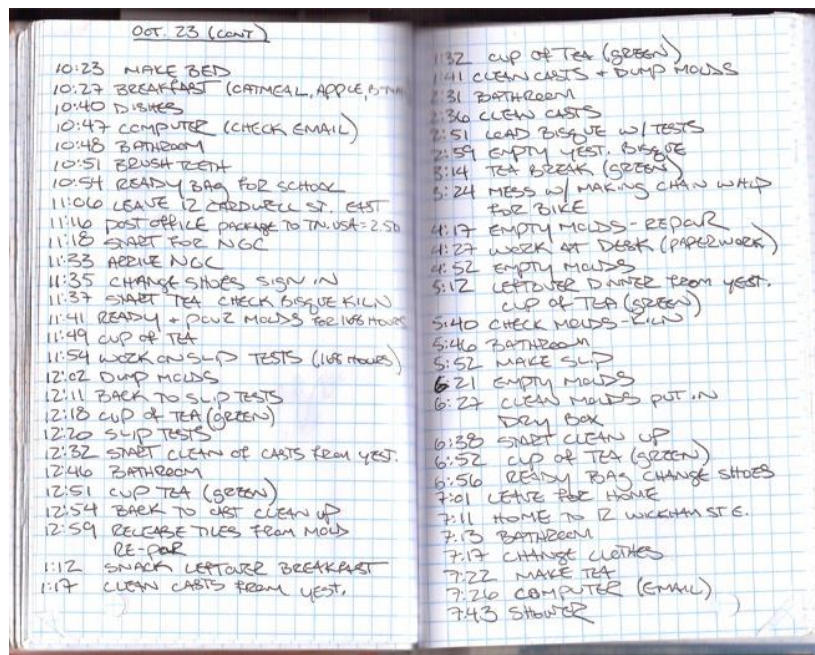 OCT. 23 (CONT)
10:23 MAKE BED
10:27 BREAKFAST (OATMEAL, APPLE,
10:40 DISHES
10:47 COMPUTER (CHECK EMAIL)
10:48 BATHROOM
10:51 BRUSH TEETH
10:54 READY BAG FOR SCHOOL
11:06 LEAVE 12 CARDWELL ST. EAST
11:16 POST OFFICE PACKAGE TO TN. USA = 2.50
11:18 START FOR NGC
11:33 ARRIVE NGC
11:35 CHANGE SHOES SIGN IN
11:37 START TEA CHECK BISQUE KILN
11:41 READY + POUR MOLDS FOR 168 HOURS
11:49 CUP OF TEA
11:54 WORK ON SLIP TESTS (168 HOURS)
12:02 DUMP MOLDS
12:11 BACK TO SLIP TESTS
12:18 CUP OF TEA (GREEN)
12:20 SLIP TESTS
12:32 START CLEAN OF CASTS FROM YEST.
12:46 BATHROOM
12:51 CUP TEA (GREEN)
12:54 BACK TO CAST CLEAN UP
12:59 RELEASE TILES FROM MOLD
RE-POUR
1:12 SNACK LEFTOVER BREAKFAST
1:17 CLEAN CASTS FROM YEST.
1:32 CUP OF TEA (GREEN)
1:41 CLEAN CASTS + DUMP MOLDS
2:31 BATHROOM
2:36 CLEAN CASTS
2:51 LOAD BISQUE W/ TESTS
2:59 EMPTY YEST. BISQUE
3:14 TEA BREAK (GREEN)
3:24 MESS W/ MAKING CHAIN WHIP
FOR BIKE
4:17 EMPTY MOLDS - REPOUR
4:27 WORK AT DESK (PAPERWORK)
4:52 EMPTY MOLDS
5:12 LEFTOVER DINNER FROM YEST.
CUP OF TEA (GREEN)
5:40 CHECK MOLDS - KILN
5:46 BATHROOM
5:52 MAKE SLIP
6:21 EMPTY MOLDS
6:27 CLEAN MOLDS PUT IN
DRY BOX
6:38 START CLEAN UP
6:52 CUP OF TEA (GREEN)
6:56 READY BAG CHANGE SHOES
7:01 LEAVE FOR HOME
7:11 HOME TO 12 WICKHAM ST E.
7:13 BATHROOM
7:17 CHANGE CLOTHES
7:22 MAKE TEA
7:26 COMPUTER (EMAIL)
7:43 SHOWER